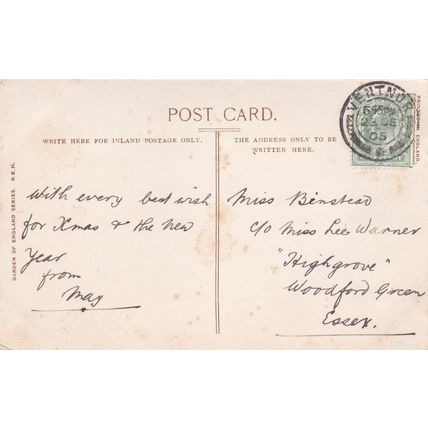 POST CARD.
WRITE HERE FOR INLAND POSTAGE ONLY.
THE ADDRESS ONLY TO BE
WRITTEN HERE.
VENTNOR
DE
05
ENGLAND.
GARDEN OF ENGLAND SERIES. R.E.H.
With every best wish
for Xmas & the New
Year
from
May
Miss Binstead
c/o Miss Lee Warner
"Highgrove"
Woodford Green
Essex.